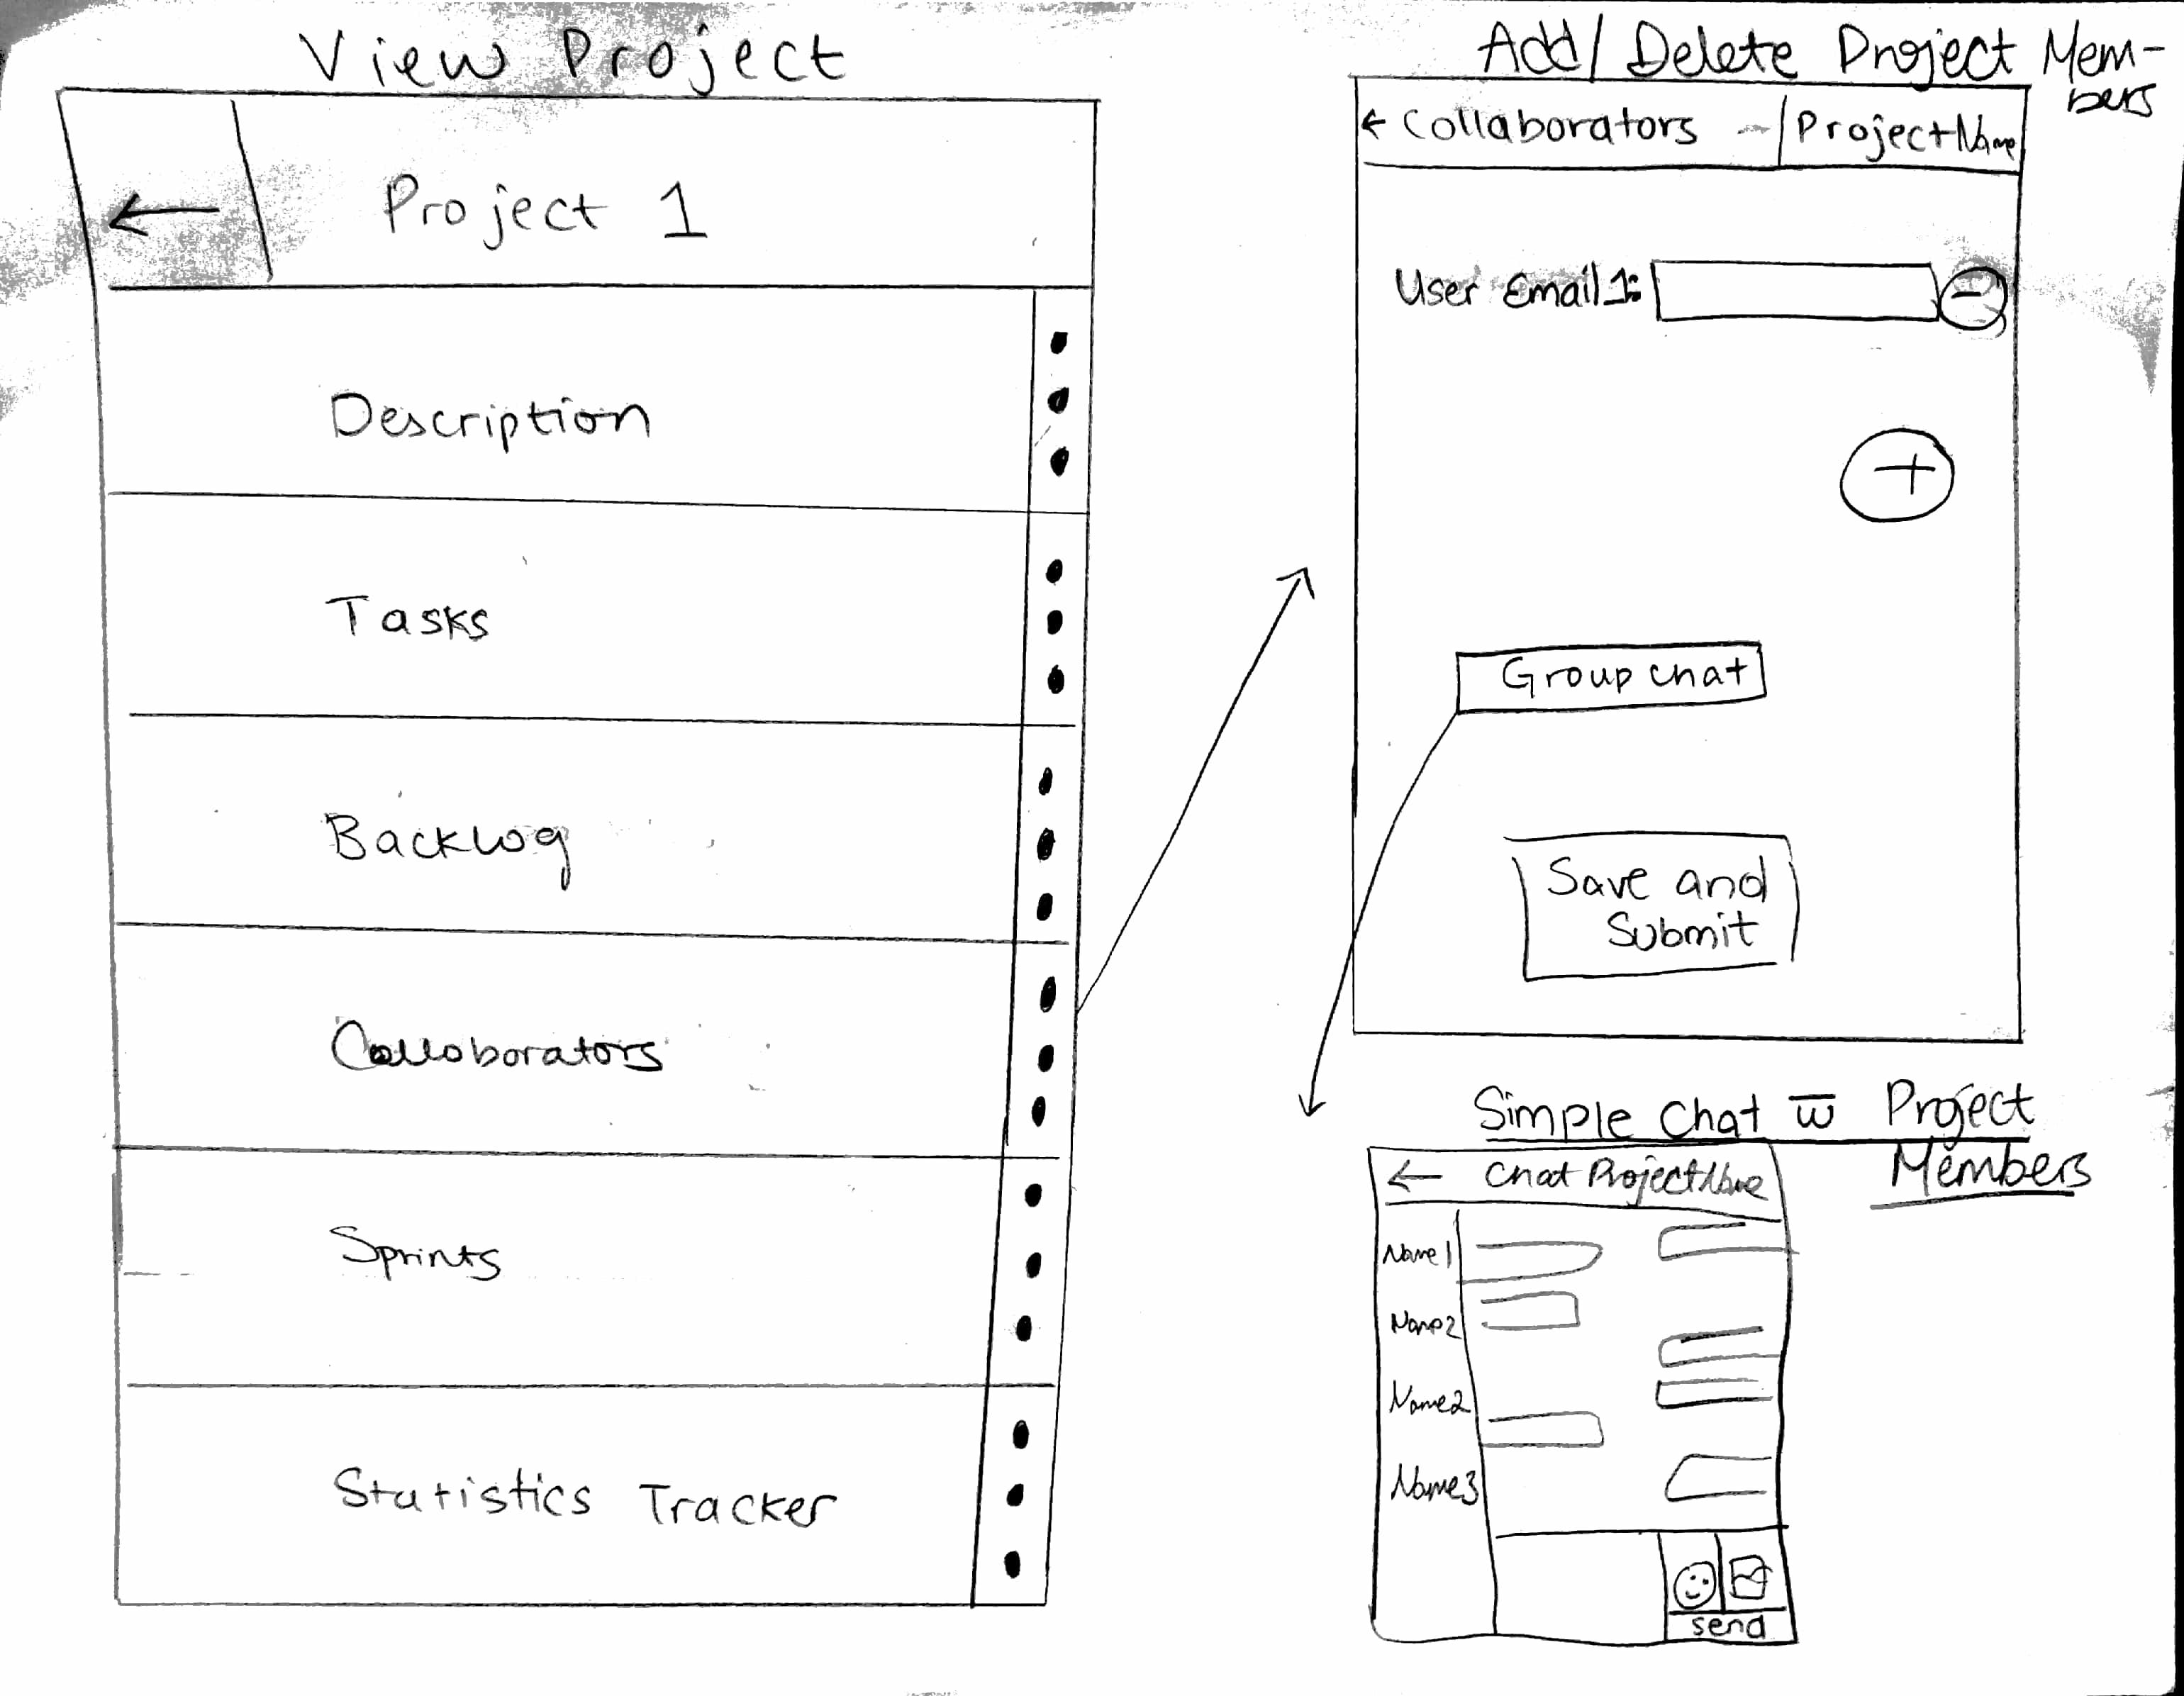 View Project
← Project 1
Description
Tasks
Backlog
Colloborators
Sprints
Statistics Tracker
Add/Delete Project Mem-
bers
← Collaborators - ProjectName
User Email 1:
-
+
Group chat
Save and
Submit
Simple Chat w̅ Project
Members
← Chat ProjectName
Name1
Name2
Name2
Name3
send